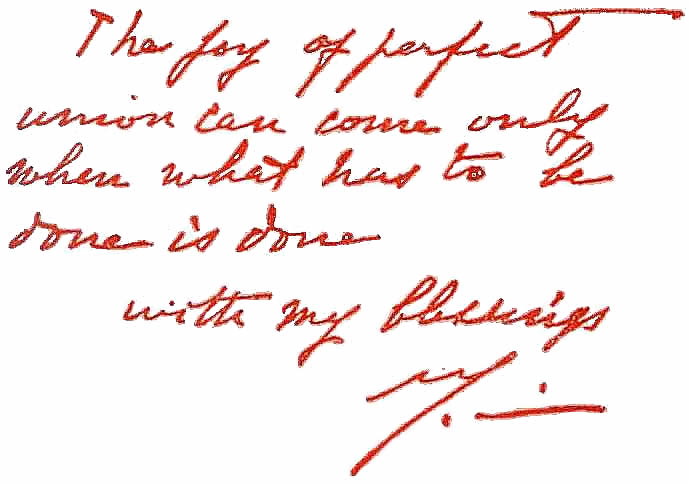 The joy of perfect
union can come only
when what has to be
done is done
with my blessings